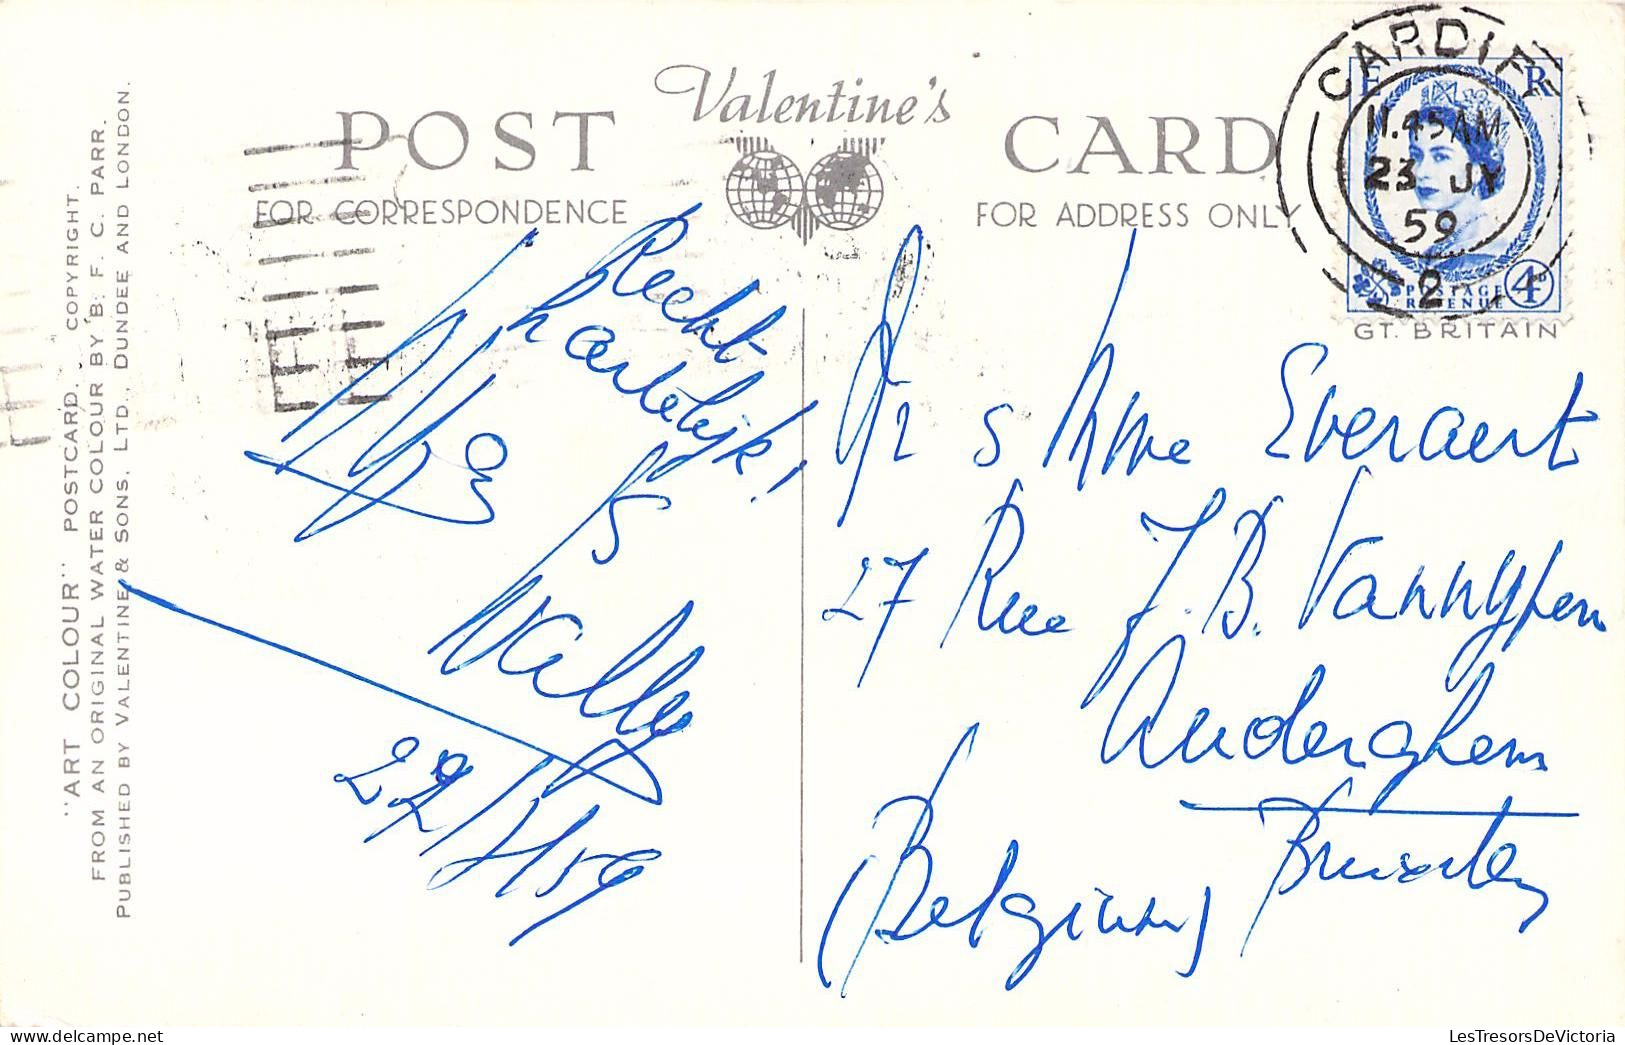 "ART COLOUR" POSTCARD. COPYRIGHT.
FROM AN ORIGINAL WATER COLOUR BY B. F. C. PARR.
PUBLISHED BY VALENTINE & SONS, LTD., DUNDEE AND LONDON.
Valentine's
POST CARD
FOR CORRESPONDENCE
FOR ADDRESS ONLY
CARDIFF
11.45AM
23 JY
59
2
E R
POSTAGE
REVENUE
4D
GT. BRITAIN
Recht
hartelijk!
Willy
22/7/59
Mr & Mme Everaert
27 Rue J.B. Vannypen
Auderghem
Bruxelles
(Belgium)
LesTresorsDeVictoria
delcampe.net